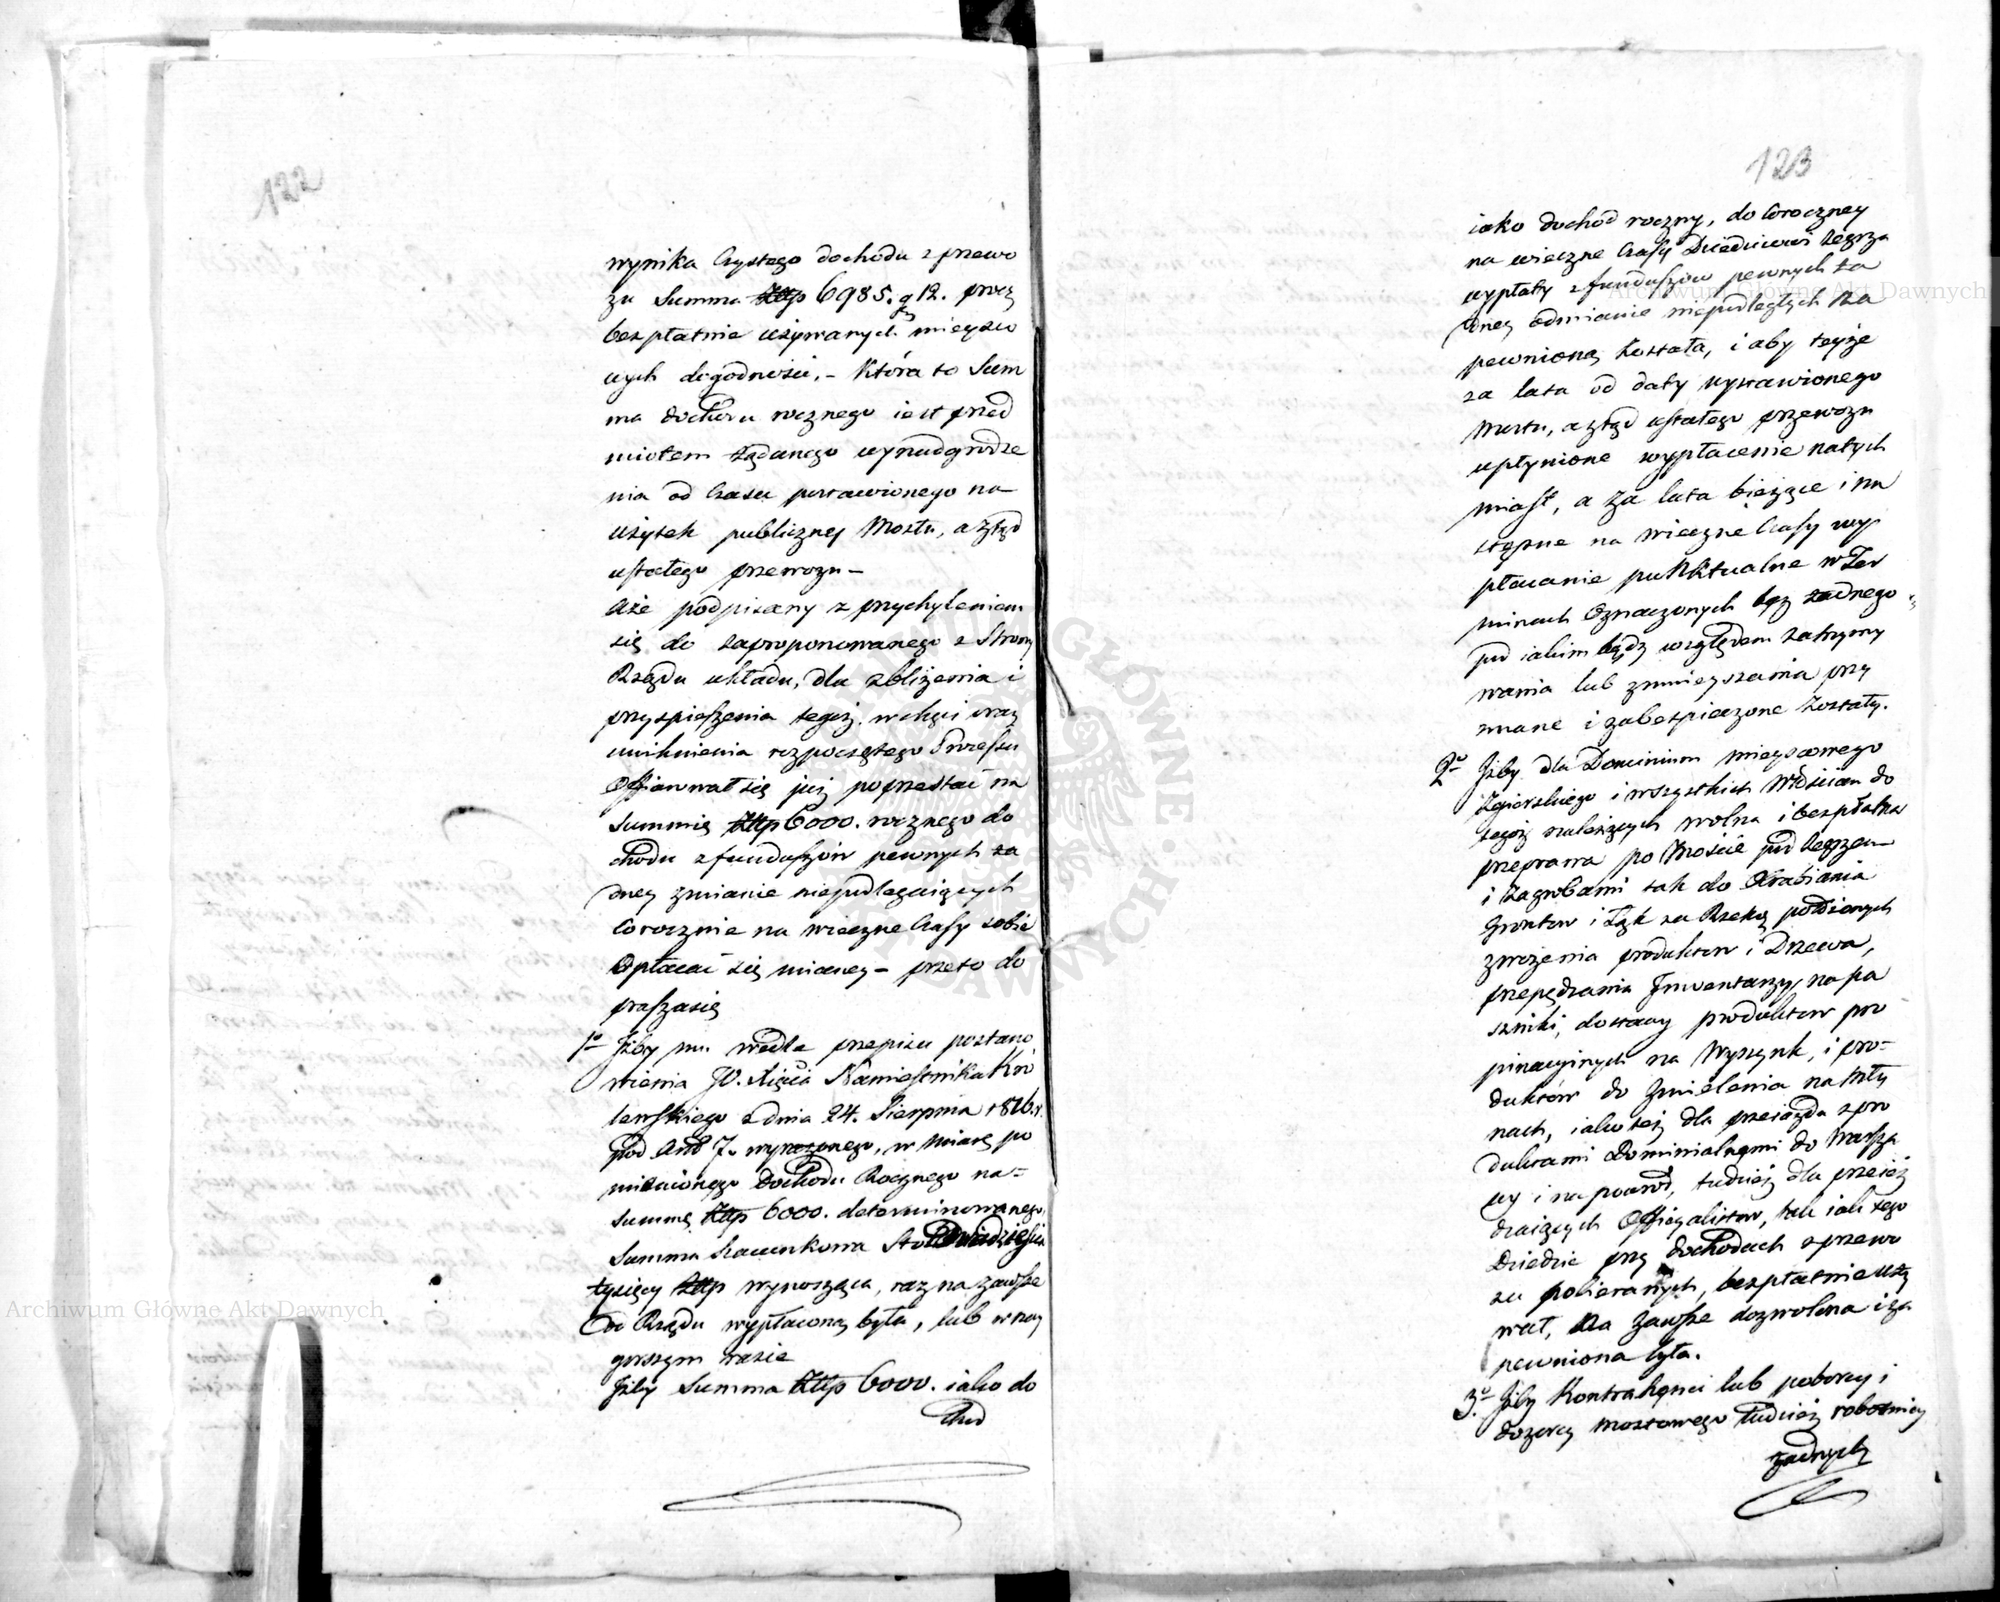 122
wynika Czystego dochodu z przewo
zu Summa Złłp 6985. g 12. procz
bezpłatnie używanych mieysco
wych dogodności. – Która to Sum
ma dochodu rocznego iest przed
miotem żądanego wynadgrodze
nia od Czasu postawionego na
użytek publiczny Mostu, a ztąd
ustałego przewozu –
Aże podpisany z przychyleniem
się do zaproponowanego z Strony
Rządu układu, dla zbliżenia i
przyspieszenia tegoż, w chęci oraz
uniknienia rozpoczętego Processu
Offiarował się już poprzestać na
Summie Złłp 6000. rocznego do
chodu z funduszów pewnych ża
dney zmianie niepodlegaiących
Corocznie na wieczne Czasy sobie
Opłacać się mianey – przeto do
prasza się
1o Iżby mu wedle przepisu postano
wienia JO. Xięcia Namiestnika Kró
lewskiego z dnia 24. Sierpnia 1816. r.
pod Art 7. wyrażonego, w miarę po
mienionego Dochodu Rocznego na=
Summę Złłp 6000. determinowanego,
Summa Szacunkowa Sto Dwadzieścia
tysięcy Złłp wynosząca, raz na zawsze
od Rządu wypłaconą była, lub w nay
gorszym razie
Iżby Summa Złłp 6000. iako do
chod
123
iako dochód roczny, do Coroczney
na wieczne Czasy Dziedzicowi Zegrza
wypłaty z funduszów pewnych ża
dney odmianie niepodległych za
pewnioną została, i aby teyże
za lata od daty wystawionego
Mostu, a ztąd ustałego przewozu
upłynione wypłacenie natych
miast, a za lata bieżące i na
stępne na wieczne Czasy wy
płacanie punktualne w Ter
minach Oznaczonych bez żadnego
pod iakim bądz względem zatrzymy
wania lub zmnieyszania przy
znane i zabespieczone zostały.
2o Iżby dla Dominium mieyscowego
Zgierskiego i wszystkich Włościan do
tegoż należących wolna i bezpłatna
przeprawa po Moście pod Zegrzem
i Zagrobami tak do Obrabiania
Gruntow i Łąk za Rzeką położonych
zwożenia produktow i Drzewa,
przepędzania Inwentarzy, na pa
szniki, dostawy produktow pro
pinacyinych na Wyszynk, i pro=
duktów do Zmielenia na Mły
nach, iako też dla przeiazdu z pro
duktami Dominialnemi do Warsza
wy i na powrot, tudzież dla przeież
dzaiących Officyalistow, tak iak tego
Dziedzic przy dochodach z przewo
zu pobieranych, bezpłatnie uży
wał, na Zawsze dozwolona i za
pewniona była.
3o Iżby Kontrahenci lub poborcy i
dozorcy mostowego tudzież robotnicy
żadnych